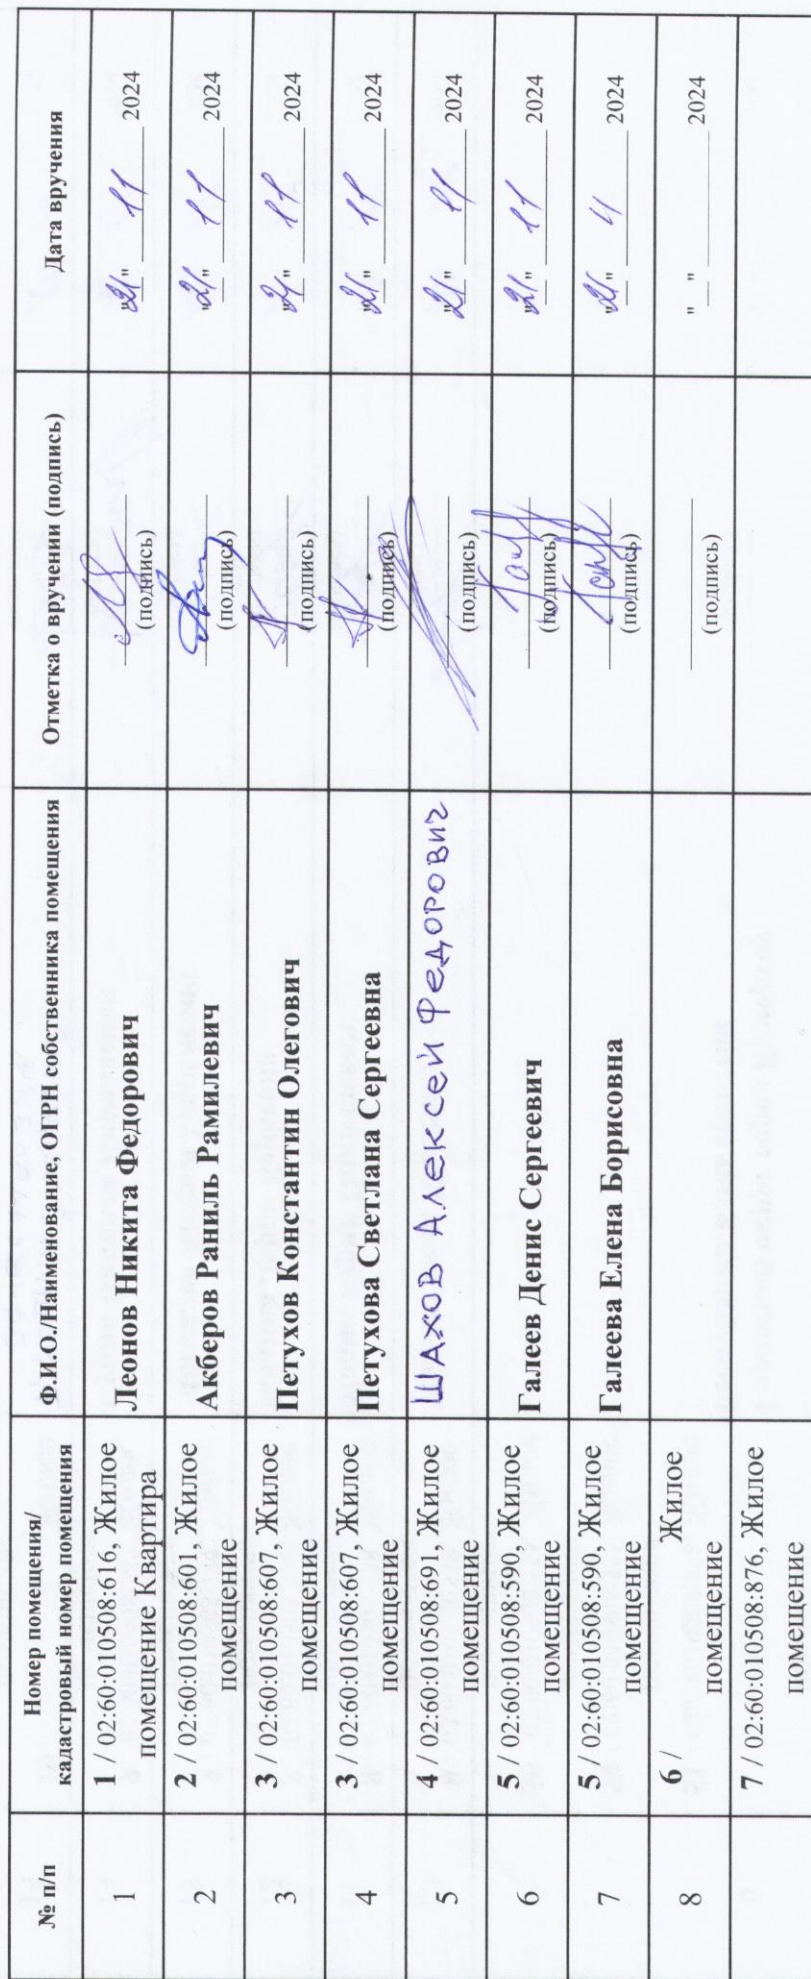 № п/п
Номер помещения/
кадастровый номер помещения
Ф.И.О./Наименование, ОГРН собственника помещения
Отметка о вручении (подпись)
Дата вручения
1
1 / 02:60:010508:616, Жилое
помещение Квартира
Леонов Никита Федорович
(подпись)
"21" 11 2024
2
2 / 02:60:010508:601, Жилое
помещение
Акберов Раниль Рамилевич
(подпись)
"21" 11 2024
3
3 / 02:60:010508:607, Жилое
помещение
Петухов Константин Олегович
(подпись)
"21" 11 2024
4
3 / 02:60:010508:607, Жилое
помещение
Петухова Светлана Сергеевна
(подпись)
"21" 11 2024
5
4 / 02:60:010508:691, Жилое
помещение
Шахов Алексей Федорович
(подпись)
"21" 11 2024
6
5 / 02:60:010508:590, Жилое
помещение
Галеев Денис Сергеевич
(подпись)
"21" 11 2024
7
5 / 02:60:010508:590, Жилое
помещение
Галеева Елена Борисовна
(подпись)
"21" 11 2024
8
6 / Жилое
помещение
(подпись)
"__" 2024
7 / 02:60:010508:876, Жилое
помещение